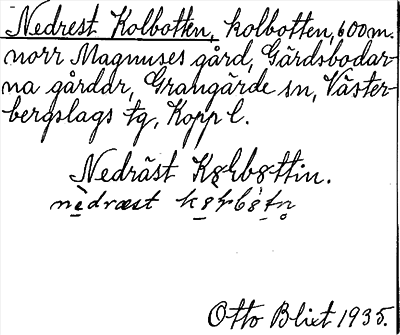 Nedrest Kolbotten, kolbotten, 600 m.
norr Magnuses gård, Gärdsbodar-
na gårddr, Grangärde sn, Väster-
bergslags tg, Kopp l.
Nedräst
nèdræst
Otto Blixt 1935.